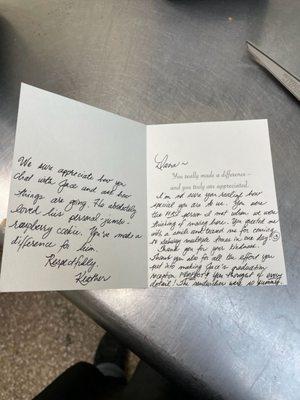 We sure appreciate how you
chat with Jace and ask how
things are going. He absolutely
loved his personal-jumbo
raspberry cookie. You've made a
difference for him.
Respectfully
Heather
Diane ~
You really made a difference—
and you truly are appreciated.
I'm not sure you realize how
special you are to us. You were
the first person I met when we were
thinking of moving here. You greeted me
with a smile and teased me for coming
to Safeway multiple times in one day!
Thank you for your kindness.
Thank you also for all the effort you
put into making Jace's graduation
reception. You thought of every
detail! The sandwiches were so yummy.